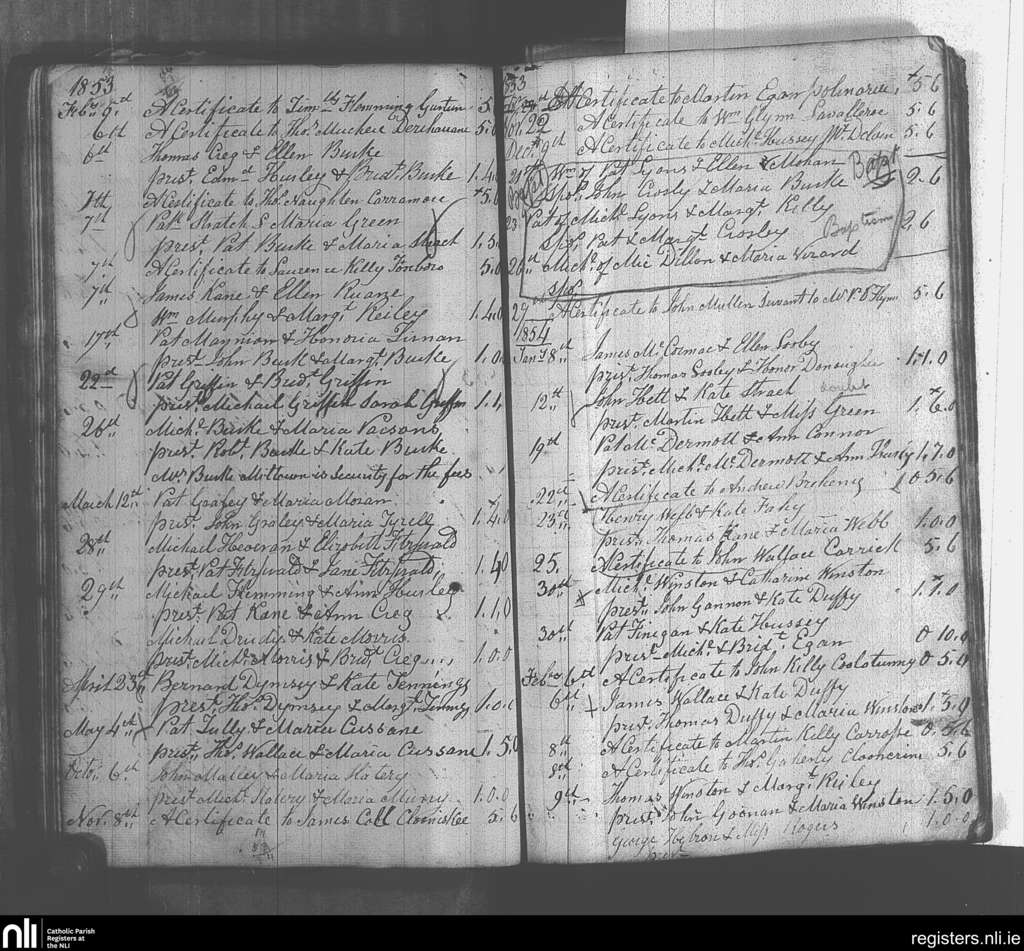 1853
Feby 9th A Certificate to Timthy Flemming Gurteen 5.
6th A Certificate to Thos. Muckere 5.0
6th Thomas Creg & Ellen Burke
prest. Edmd Hurley & Bridt. Burke 1.4.0
7th A Certificate to Thos. Naughten Corramore 5.6
7th Patk. & Maria Green
prest. Pat Burke & Maria 1.5.
7th A Certificate to Laurence Killy 5.0
7th James Kane & Ellen Ruane
Wm Murphy & Margt. Reiley 1.4.0
17th Pat Mannion & Honoria Tirnan
prest. John Burke & Margt. Burke 1.0.
22nd Pat Griffin & Bridt. Griffin
prest. Michael Griffin Sarah Griffin 1.1.
26th Michl. Burke & Maria Parsons
prest. Robt. Burke & Kate Burke
Mr. Burke Miltown is Security for the fees
March 12th Pat & Maria Moran
prest. John & Maria Tyrell 1.4.0
28th Michael & Elizabeth Fitzgerald
prest. Pat Fitzgerald & Jane Fitzgerald 1.4.0
29th Michael Flemming & Ann Hurley
prest. Pat Kane & Ann Creg 1.1.0
Michael & Kate Morris
prest. Michl. Morris & Bridt. Creg 1.0.0
April 23rd Bernard Dymsey & Kate Jennings
prest. Thos. Dymsey & Margt. 1.0.
May 4th Pat Tully & Maria Cussane
prest. Thos. Wallace & Maria Cussane 1.5.0
Octr. 6th John Malley & Maria
prest. Michl. & Maria 1.0.0
Novr. 8th A Certificate to James Coll 5.6
53
A Certificate to Martin Egan 5.6
Nov. 22 A Certificate to Wm Glynn Lavalleroe 5.6
Decr. 9th A Certificate to Michl. Hussey 5.6
21st Wm of Pat Lyons & Ellen Mohan Bapt
Spos. John Cosly & Maria Burke 2.6
23 Pat of Michl. Lyons & Margt. Killy
Spos. Pat & Margt. Crosley Baptism 2.6
26th Michl. of Mic Dillon & Maria
Spos.
27 A Certificate to John Mullen Servant to Mr. P. O Flynn 5.6
1854
Jany 8th James McCormac & Ellen Sooby
prest. Thomas Sooley & Honor Donoughue 1.1.0
12th John Hett & Kate Strach
prest. Martin Hett & Miss Green 1.6.0
19th Pat McDermott & Ann Connor
prest. Michl. McDermott & Ann 1.7.0
22nd A Certificate to Andrew 0 5.6
23rd Henry Webb & Kate Fahy
prest. Thomas Kane & Maria Webb 1.0.0
25. A Certificate to John Wallace Carrick 5.6
30th Michl. Winston & Catharine Winston
prest. John Gannon & Kate Duffy 1.7.0
30th Pat Finegan & Kate Hussey
prest. Michl. & Bridt. Egan 0 10.0
Feby 6th A Certificate to John Killy 0 5.0
6th James Wallace & Kate Duffy
prest. Thomas Duffy & Maria Winston 1.5.0
8th A Certificate to Martin Killy Carroroe 0.5.6
8th A Certificate to Thos. Gaherty 5.6
9th Thomas Winston & Margt. Reiley
prest. John Goonan & Maria Winston 1.5.0
George & Miss Rogers 1.0.0
nli
Catholic Parish
Registers at
the NLI
registers.nli.ie